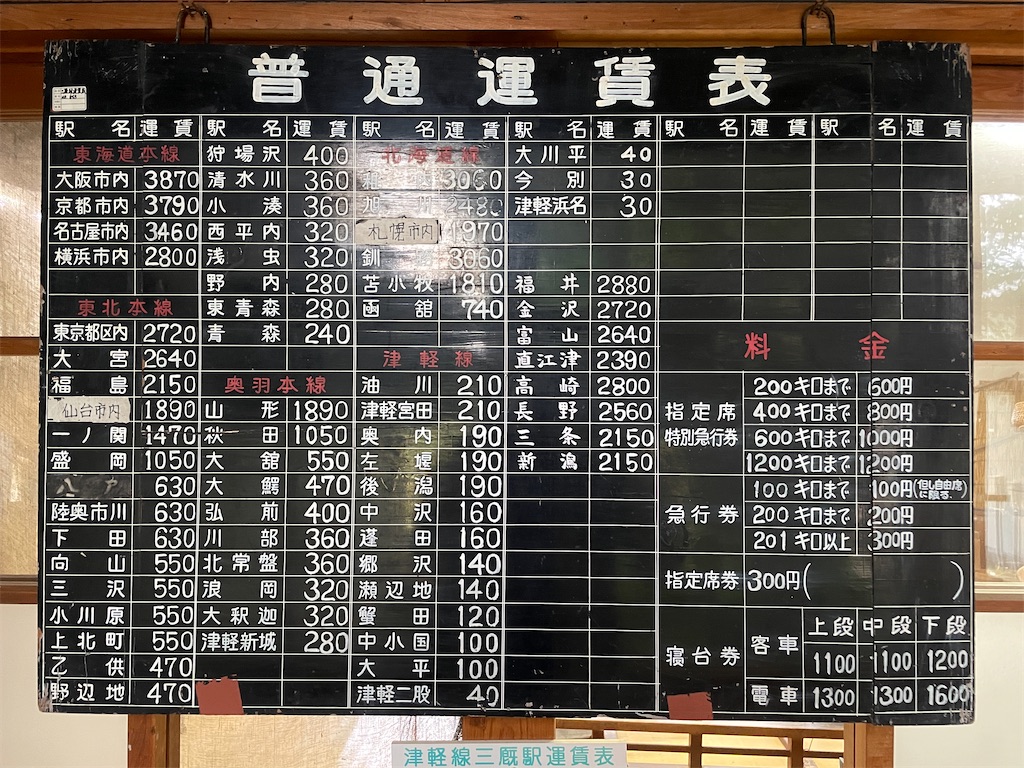 普通運賃表
駅名 運賃 駅名 運賃 駅名 運賃 駅名 運賃 駅名 運賃 駅名 運賃
東海道本線
大阪市内 3870
京都市内 3790
名古屋市内 3460
横浜市内 2800
東北本線
東京都区内 2720
大宮 2640
福島 2150
仙台市内 1890
一ノ関 1470
盛岡 1050
八戸 630
陸奥市川 630
下田 630
向山 550
三沢 550
小川原 550
上北町 550
乙供 470
野辺地 470
狩場沢 400
清水川 360
小湊 360
西平内 320
浅虫 320
野内 280
東青森 280
青森 240
奥羽本線
山形 1890
秋田 1050
大舘 550
大鰐 470
弘前 400
川部 360
北常盤 360
浪岡 320
大釈迦 320
津軽新城 280
北海道線
3060
旭川 2480
札幌市内 1970
釧 3060
苫小牧 1810
函舘 740
津軽線
油川 210
津軽宮田 210
奥内 190
左堰 190
後潟 190
中沢 160
蓬田 160
郷沢 140
瀬辺地 140
蟹田 120
中小国 100
大平 100
津軽二股 40
大川平 40
今別 30
津軽浜名 30
福井 2880
金沢 2720
富山 2640
直江津 2390
高崎 2800
長野 2560
三条 2150
新潟 2150
料金
指定席特別急行券
200キロまで 600円
400キロまで 800円
600キロまで 1000円
1200キロまで 1200円
急行券
100キロまで 100円(但し自由席に限る.)
200キロまで 200円
201キロ以上 300円
指定席券 300円( )
寝台券
上段 中段 下段
客車 1100 1100 1200
電車 1300 1300 1600
津軽線三厩駅運賃表